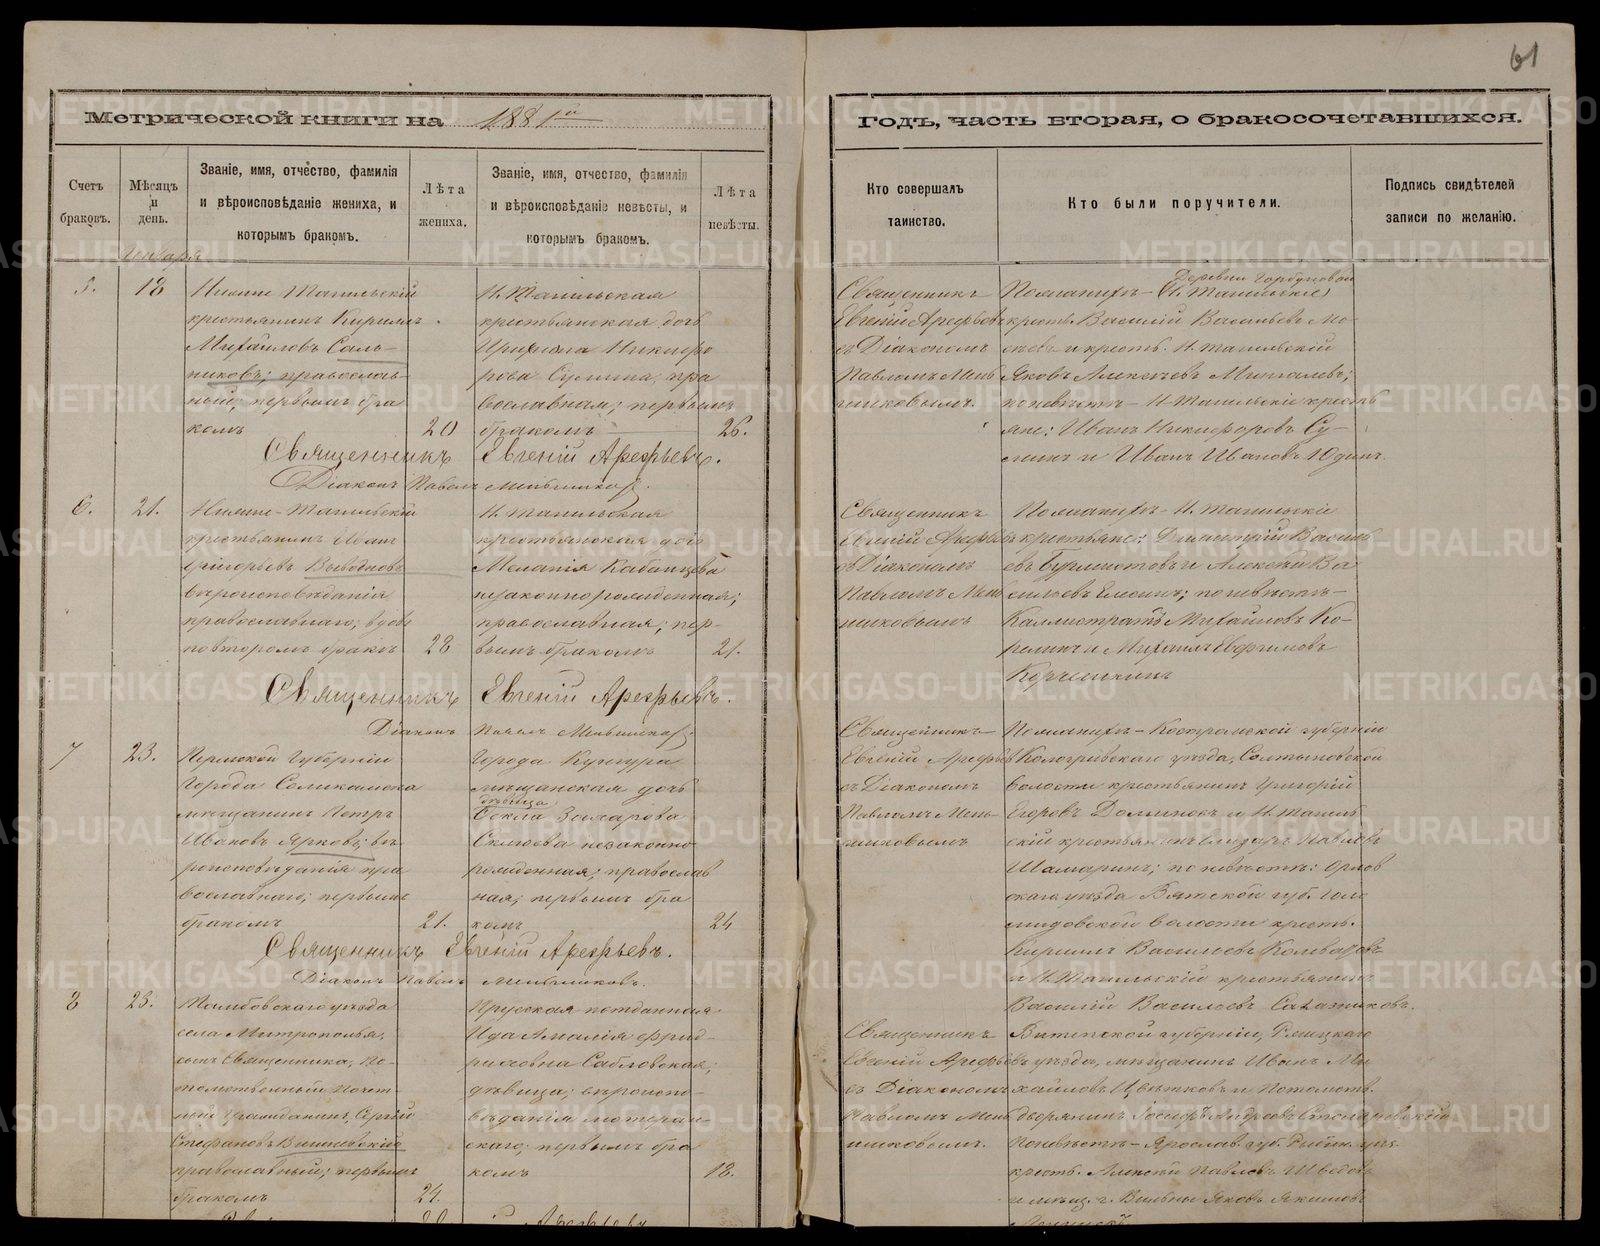 61
Метрической книги на 1881й
годъ, часть вторая, о бракосочетавшихся.
Счетъ браковъ.
Мѣсяцъ и день.
Званіе, имя, отчество, фамилія и вѣроисповѣданіе жениха, и которымъ бракомъ.
Лѣта жениха.
Званіе, имя, отчество, фамилія и вѣроисповѣданіе невѣсты, и которымъ бракомъ.
Лѣта невѣсты.
Кто совершалъ таинство.
Кто были поручители.
Подпись свидѣтелей записи по желанію.
Января
5.
18
Нижне Тагильскій
крестьянинъ Кириллъ
Михайловъ Саль-
никовъ; православ-
ный; первымъ бра
комъ
20
Н. Тагильская
крестьянская дочь
Никифо
рова Сулина; пра
вославная; первымъ
бракомъ
26.
Священникъ
Евгеній Арефьевъ
съ Діакономъ
Павломъ Мень
шиковымъ.
Деревни Горбуновой
По женихѣ - Н. Тагильскіе
крест. Василій Васильевъ
и крест. Н. Тагильскій
Яковъ Алексѣевъ
по невѣстѣ - Н. Тагильскіе кресть
яне: Иванъ Никифоровъ Су-
линъ и Иванъ Ивановъ Юдинъ.
Священникъ Евгеній Арефьевъ.
Діаконъ Павелъ Меньшиковъ.
6.
21.
Нижне-Тагильскій
крестьянинъ Иванъ
Григорьевъ Выводновъ
вѣроисповѣданія
православнаго; вдовъ
по второмъ бракѣ
28
Н. Тагильская
крестьянская дочь
Меланія Кабанцева
незаконнорожденная;
православная; пер-
вымъ бракомъ
21.
Священникъ
Евгеній Арефьевъ
съ Діакономъ
Павломъ Мень
шиковымъ
По женихѣ - Н. Тагильскіе
крестьяне: Димитрій Василь
евъ Бурмистовъ и Алексѣй Ва
сильевъ Елохинъ; по невѣстѣ -
Каллистратъ Михайловъ Ко-
релинъ и Михаилъ
Священникъ Евгеній Арефьевъ.
Діаконъ Павелъ Меньшиковъ
7
23.
Пермской Губерніи
Города Соликамска
мѣщанинъ Петръ
Ивановъ Ярковъ; вѣ-
роисповѣданія пра
вославнаго; первымъ
бракомъ
21.
Города Кунгура
мѣщанская дочь
дѣвица
Ѳекла Захарова
незаконно
рожденная; православ
ная; первымъ бра
комъ
24
Священникъ
Евгеній Арефьевъ
съ Діакономъ
Павломъ Мень-
шиковымъ
По женихѣ - Костромской губерніи
Кологривскаго уѣзда, Солтановской
волости крестьянинъ Григорій
Егоровъ и Н. Тагиль
скій крестьянинъ Елизаръ Павловъ
Шамаринъ; по невѣстѣ: Орлов
скаго уѣзда Вятской губ.
волости крест.
Кириллъ Васильевъ
и Н. Тагильскій крестьянинъ
Василій Васильевъ
Священникъ Евгеній Арефьевъ.
Діаконъ Павелъ Меньшиковъ.
8
23.
Тамбовскаго уѣзда
села Митрополья,
сынъ Священника, По-
томственный Почет-
ный Гражданинъ, Сергѣй
Стефановъ Вишневскій
православный; первымъ
бракомъ
24.
Прусская подданная
Ида Амалія Фрид-
риховна Сабловская;
дѣвица; вѣроиспо-
вѣданія лютеран-
скаго; первымъ бра
комъ
18.
Священникъ
Евгеній Арефьевъ
съ Діакономъ
Павломъ Мень
шиковымъ.
Витебской губерніи, Рѣжицкаго
уѣзда, мѣщанинъ Иванъ Ми
хайловъ Цвѣтковъ и Потомств.
дворянинъ Іосифъ Андреевъ
По невѣстѣ - Ярослав. губ. Рыбин. уѣз.
крест. Алексѣй Павловъ Шведовъ
и мѣщ. г. Вильны Яковъ Якимовъ
METRIKI.GASO-URAL.RU